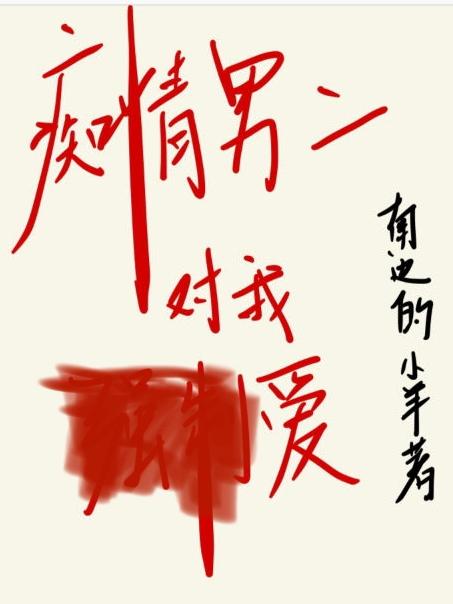 痴情男二
对我
强制爱
南边的小羊著